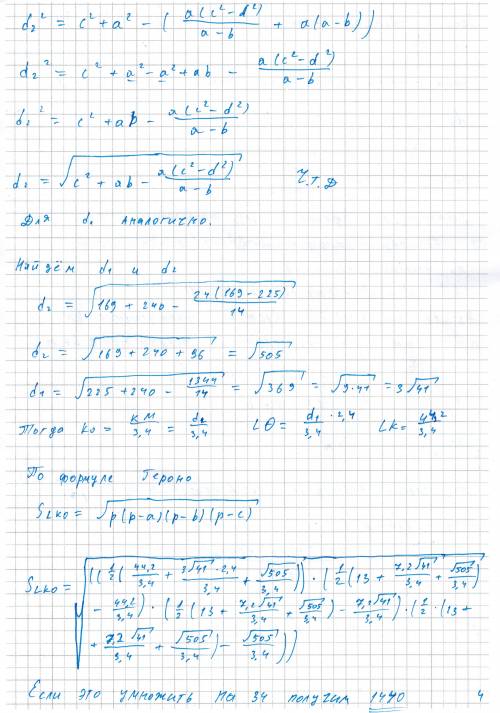 d₂² = c² + a² - ( a(c² - d²) / (a - b) + a(a - b))
d₂² = c² + a² - a² + ab - a(c² - d²) / (a - b)
d₂² = c² + ab - a(c² - d²) / (a - b)
d₂ = √(c² + ab - a(c² - d²) / (a - b)) Ч.т.д
Для d₁ аналогично.
Найдём d₁ и d₂
d₂ = √(169 + 240 - 24(169 - 225) / 14)
d₂ = √(169 + 240 + 96) = √505
d₁ = √(225 + 240 - 1344 / 14) = √369 = √9·41 = 3√41
Тогда KO = KM / 3,4 = d₂ / 3,4 LO = d₁ / 3,4 · 2,4 LK = 44,2 / 3,4
По формуле Герона
S_LKO = √p(p-a)(p-b)(p-c)
S_LKO = √((½(44,2 / 3,4 + 3√41·2,4 / 3,4 + √505 / 3,4)) · (½(13 + 7,2√41 / 3,4 + √505 / 3,4)
- 44,2 / 3,4) · (½(13 + 7,2√41 / 3,4 + √505 / 3,4) - 7,2√41 / 3,4) · (½ · (13 +
+ 7,2√41 / 3,4 + √505 / 3,4) - √505 / 3,4))
Если это умножить на 34 получим 1440 4